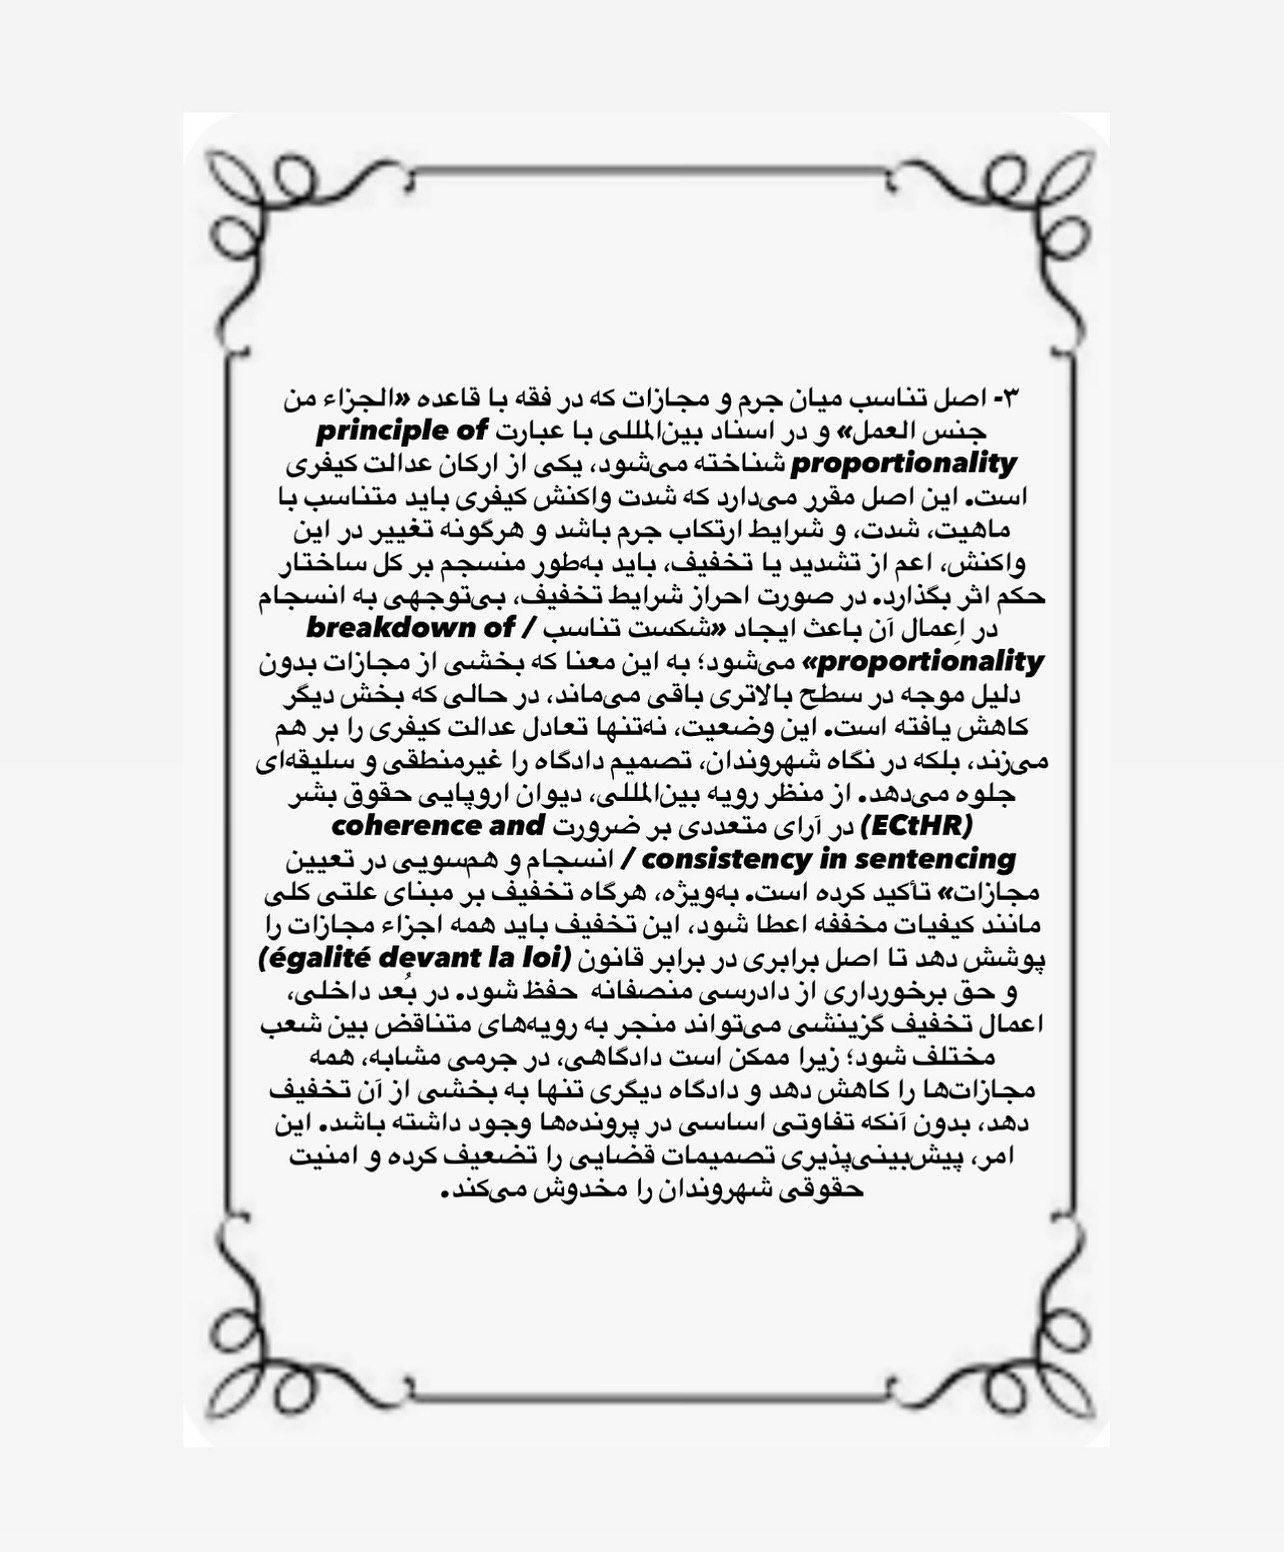 ۳- اصل تناسب میان جرم و مجازات که در فقه با قاعده «الجزاء من
جنس العمل» و در اسناد بین‌المللی با عبارت principle of
proportionality شناخته می‌شود، یکی از ارکان عدالت کیفری
است. این اصل مقرر می‌دارد که شدت واکنش کیفری باید متناسب با
ماهیت، شدت، و شرایط ارتکاب جرم باشد و هرگونه تغییر در این
واکنش، اعم از تشدید یا تخفیف، باید به‌طور منسجم بر کل ساختار
حکم اثر بگذارد. در صورت احراز شرایط تخفیف، بی‌توجهی به انسجام
در اِعمال آن باعث ایجاد «شکست تناسب / breakdown of
proportionality» می‌شود؛ به این معنا که بخشی از مجازات بدون
دلیل موجه در سطح بالاتری باقی می‌ماند، در حالی که بخش دیگر
کاهش یافته است. این وضعیت، نه‌تنها تعادل عدالت کیفری را بر هم
می‌زند، بلکه در نگاه شهروندان، تصمیم دادگاه را غیرمنطقی و سلیقه‌ای
جلوه می‌دهد. از منظر رویه بین‌المللی، دیوان اروپایی حقوق بشر
(ECtHR) در آرای متعددی بر ضرورت coherence and
consistency in sentencing / انسجام و هم‌سویی در تعیین
مجازات» تأکید کرده است. به‌ویژه، هرگاه تخفیف بر مبنای علتی کلی
مانند کیفیات مخففه اعطا شود، این تخفیف باید همه اجزاء مجازات را
پوشش دهد تا اصل برابری در برابر قانون (égalité devant la loi)
و حق برخورداری از دادرسی منصفانه حفظ شود. در بُعد داخلی،
اعمال تخفیف گزینشی می‌تواند منجر به رویه‌های متناقض بین شعب
مختلف شود؛ زیرا ممکن است دادگاهی، در جرمی مشابه، همه
مجازات‌ها را کاهش دهد و دادگاه دیگری تنها به بخشی از آن تخفیف
دهد، بدون آنکه تفاوتی اساسی در پرونده‌ها وجود داشته باشد. این
امر، پیش‌بینی‌پذیری تصمیمات قضایی را تضعیف کرده و امنیت
حقوقی شهروندان را مخدوش می‌کند.